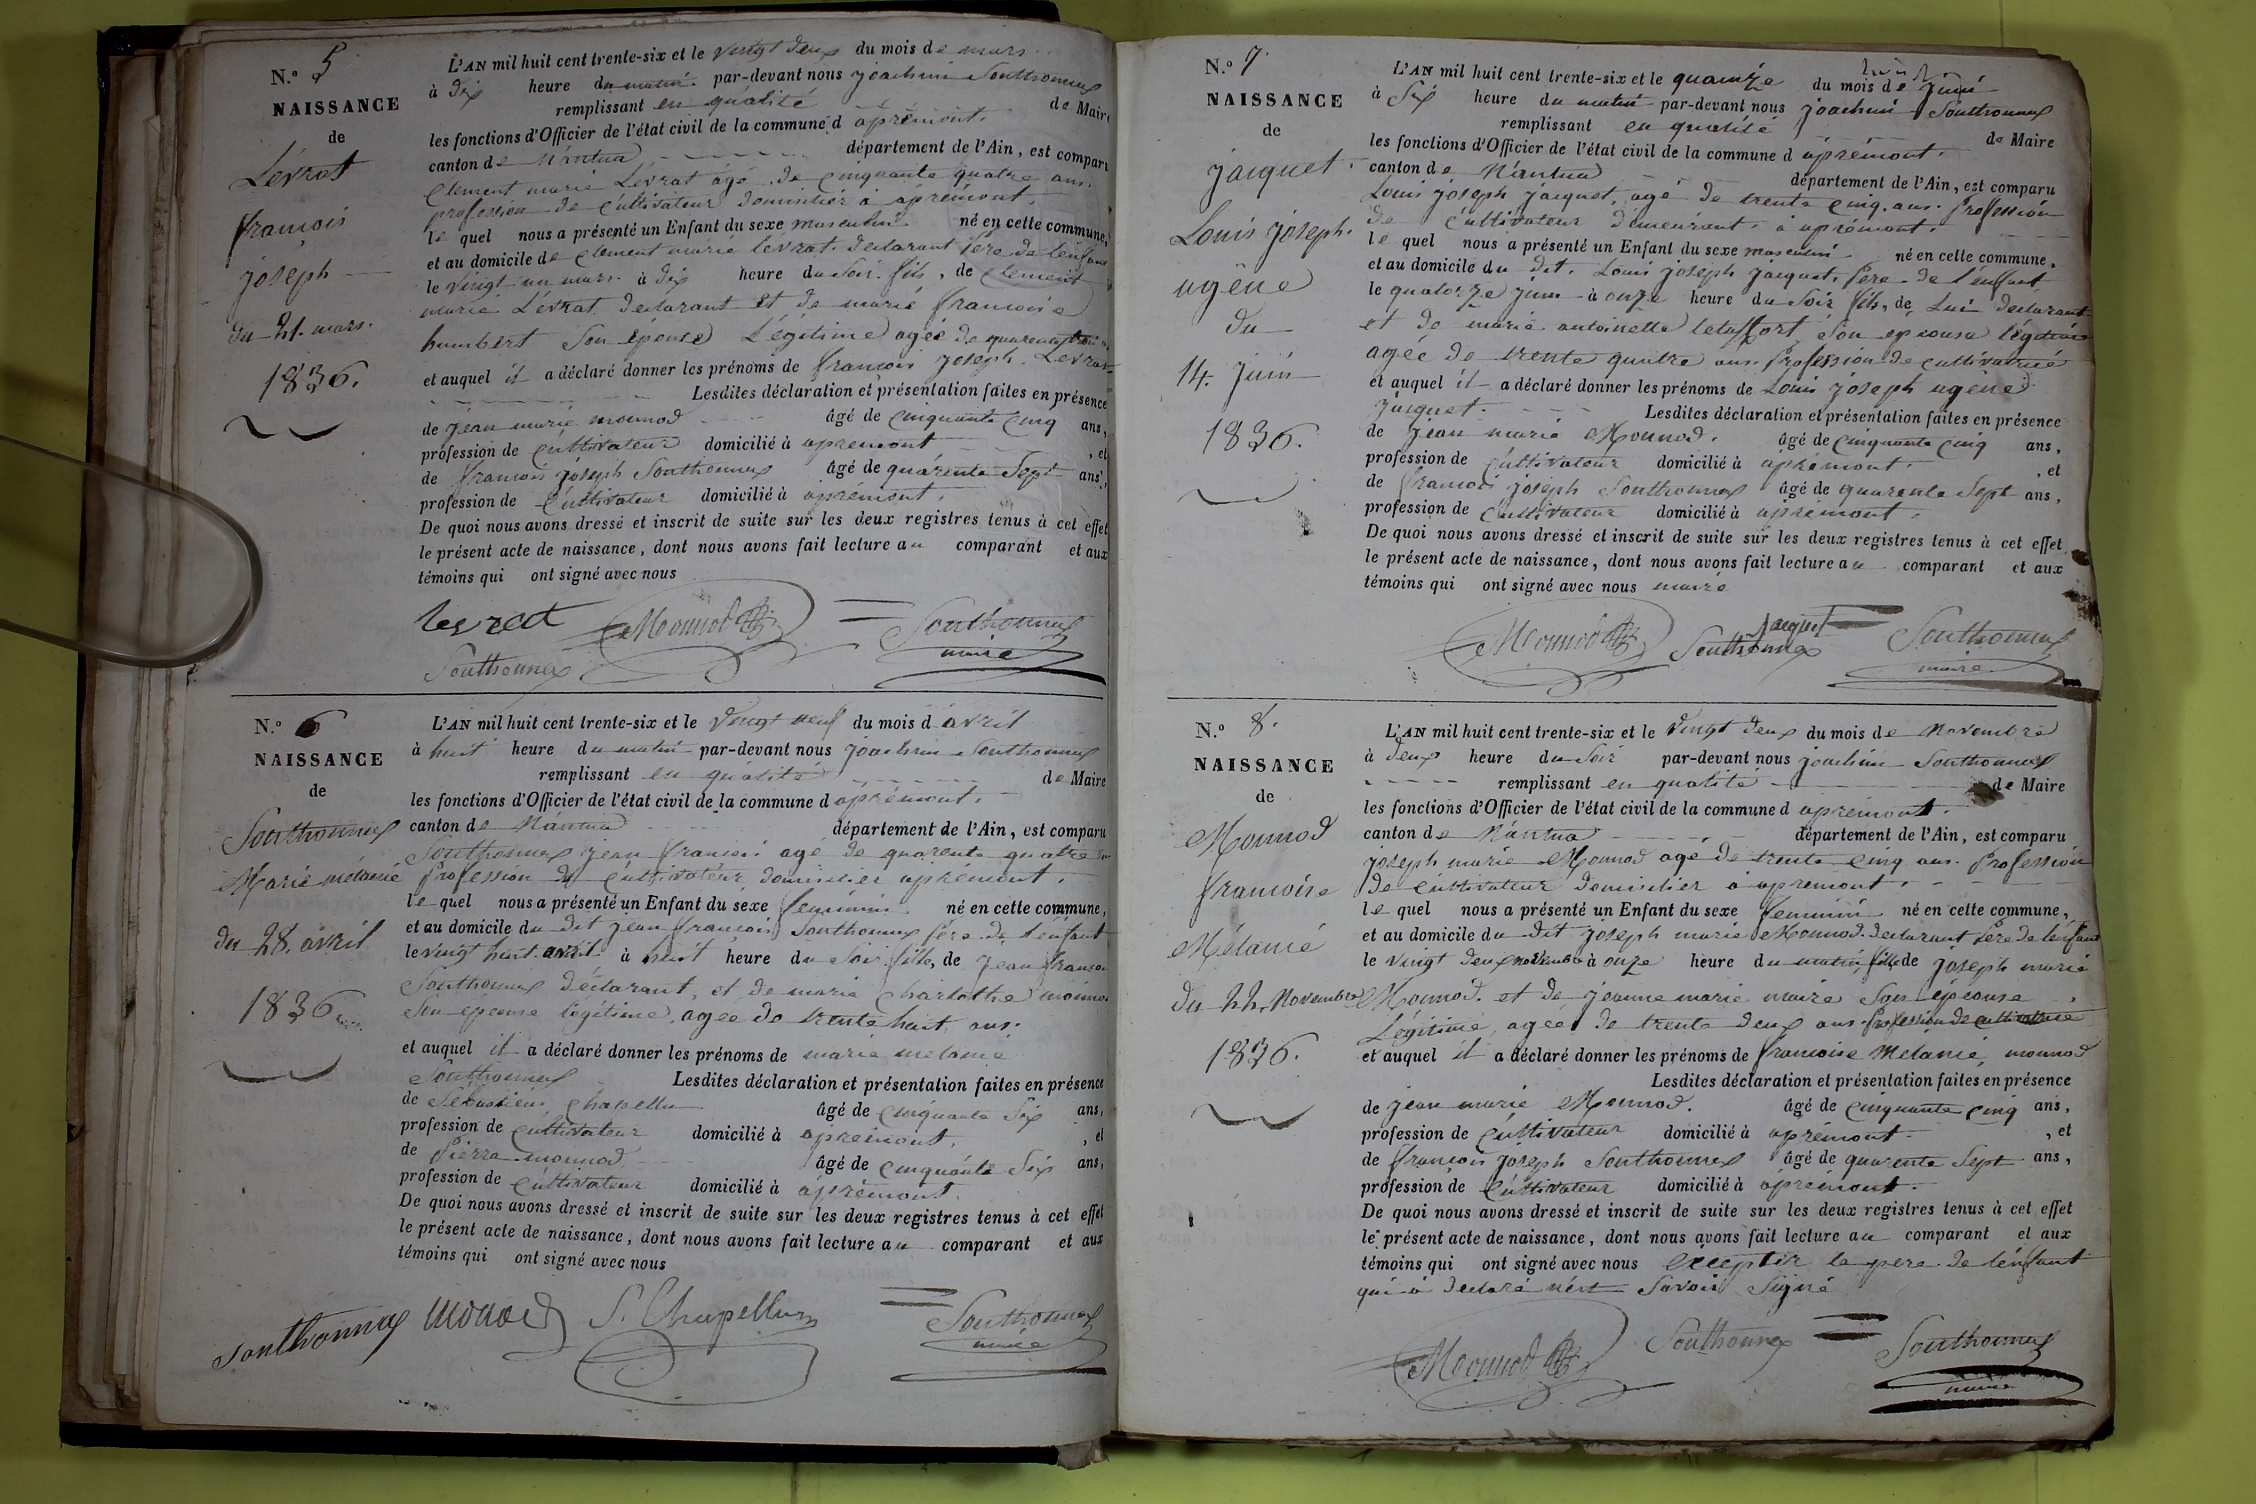 N.º 5
NAISSANCE
de
Levrat
françois
joseph
du 21. mars.
1836.
L'AN mil huit cent trente-six et le vingt deux du mois de mars
à dix heure du matin par-devant nous joachim Sonthonnax
remplissant en qualité de Maire
les fonctions d'Officier de l'état civil de la commune d'apremont.
canton de Nantua département de l'Ain, est comparu
Clement marie Levrat agé de cinquante quatre ans.
profession de cultivateur domicilier à apremont.
le quel nous a présenté un Enfant du sexe masculin né en cette commune,
et au domicile de Clement marie levrat. declarant père de lenfant
le vingt un mars à dix heure du Soir fils, de Clement
marie Levrat declarant et de marie francoise
humbert Son épouse Légitime agée de quarente
et auquel il a déclaré donner les prénoms de francois joseph Levrat
Lesdites déclaration et présentation faites en présence
de jean marie mounod âgé de cinquante cinq ans,
profession de cultivateur domicilié à apremont , et
de francois joseph Sonthonnax âgé de quarente Sept ans,
profession de cultivateur domicilié à apremont.
De quoi nous avons dressé et inscrit de suite sur les deux registres tenus à cet effet
le présent acte de naissance, dont nous avons fait lecture au comparant et aux
témoins qui ont signé avec nous
levrat Mounod Sonthonnax
maire
Sonthonnax
N.º 6
NAISSANCE
de
Sonthonnax
Marie mélanie
du 28. avril
1836
L'AN mil huit cent trente-six et le vingt neuf du mois d avril
à huit heure du matin par-devant nous joachim Sonthonnax
remplissant en qualité de Maire
les fonctions d'Officier de l'état civil de la commune d apremont.
canton de Nantua département de l'Ain, est comparu
Sonthonnax jean francois agé de quarente quatre
Profession de cultivateur domicilier apremont.
le quel nous a présenté un Enfant du sexe feminin né en cette commune,
et au domicile du dit jean francois Sonthonnax père de l'enfant
le vingt huit avril à huit heure du Soir fille, de jean francois
Sonthonnax déclarant, et de marie Charlotte mounod
Son épouse légitime, agée de trente huit ans.
et auquel il a déclaré donner les prénoms de marie melanie
Sonthonnax Lesdites déclaration et présentation faites en présence
de Sébastien Chapellu âgé de cinquante Six ans,
profession de cultivateur domicilié à apremont. , et
de Pierre mounod âgé de cinquante Six ans,
profession de cultivateur domicilié à apremont.
De quoi nous avons dressé et inscrit de suite sur les deux registres tenus à cet effet
le présent acte de naissance, dont nous avons fait lecture au comparant et aux
témoins qui ont signé avec nous
Sonthonnax monod S. Chapellu Sonthonnax
maire
N.º 7.
NAISSANCE
de
jacquet.
Louis joseph.
ugène
du
14. juin
1836.
L'AN mil huit cent trente-six et le quainze du mois de juin
à Six heure du matin par-devant nous joachim Sonthonnax
remplissant en qualité de Maire
les fonctions d'Officier de l'état civil de la commune d apremont.
canton de Nantua département de l'Ain, est comparu
Louis joseph jacquet, agé de trente cinq ans. Profession
de cultivateur demeurant à apremont.
le quel nous a présenté un Enfant du sexe masculin né en cette commune,
et au domicile du dit. Louis joseph jacquet, père de l'enfant
le quatorze juin à onze heure du Soir fils, de Lui declarant
et de marie antoinette Son epouse légitime
agée de trente quatre ans. Profession de cultivatrice
et auquel il a déclaré donner les prénoms de Louis joseph ugène
jacquet. Lesdites déclaration et présentation faites en présence
de jean marie Mounod. âgé de cinquante cinq ans,
profession de cultivateur domicilié à apremont. , et
de francois joseph Sonthonnax âgé de quarente Sept ans,
profession de cultivateur domicilié à apremont.
De quoi nous avons dressé et inscrit de suite sur les deux registres tenus à cet effet
le présent acte de naissance, dont nous avons fait lecture au comparant et aux
témoins qui ont signé avec nous maire
Mounod Sonthonnax jacquet Sonthonnax
maire
N.º 8.
NAISSANCE
de
Mounod
francoise
Mélanie
du 22. Novembre
1836.
L'AN mil huit cent trente-six et le vingt deux du mois de Novembre
à deux heure du Soir par-devant nous joachim Sonthonnax
remplissant en qualité de Maire
les fonctions d'Officier de l'état civil de la commune d apremont.
canton de Nantua département de l'Ain, est comparu
joseph marie Mounod agé de trente cinq ans. Profession
de cultivateur domicilier à apremont.
le quel nous a présenté un Enfant du sexe feminin né en cette commune,
et au domicile du dit joseph marie Mounod. declarant père de lenfant
le vingt deux novembre à onze heure du matin, fille de joseph marie
Mounod. et de jeanne marie maire Son épouse
Légitime, agée de trente deux ans. Profession de cultivatrice
et auquel il a déclaré donner les prénoms de francoise Melanie mounod
Lesdites déclaration et présentation faites en présence
de jean marie Mounod. âgé de cinquante cinq ans,
profession de cultivateur domicilié à apremont. , et
de francois joseph Sonthonnax âgé de quarente Sept ans,
profession de cultivateur domicilié à apremont.
De quoi nous avons dressé et inscrit de suite sur les deux registres tenus à cet effet
le présent acte de naissance, dont nous avons fait lecture au comparant et aux
témoins qui ont signé avec nous exceptér le pere de l'enfant
qui à declaré n'èst Savoir Signé
Mounod Sonthonnax Sonthonnax
maire